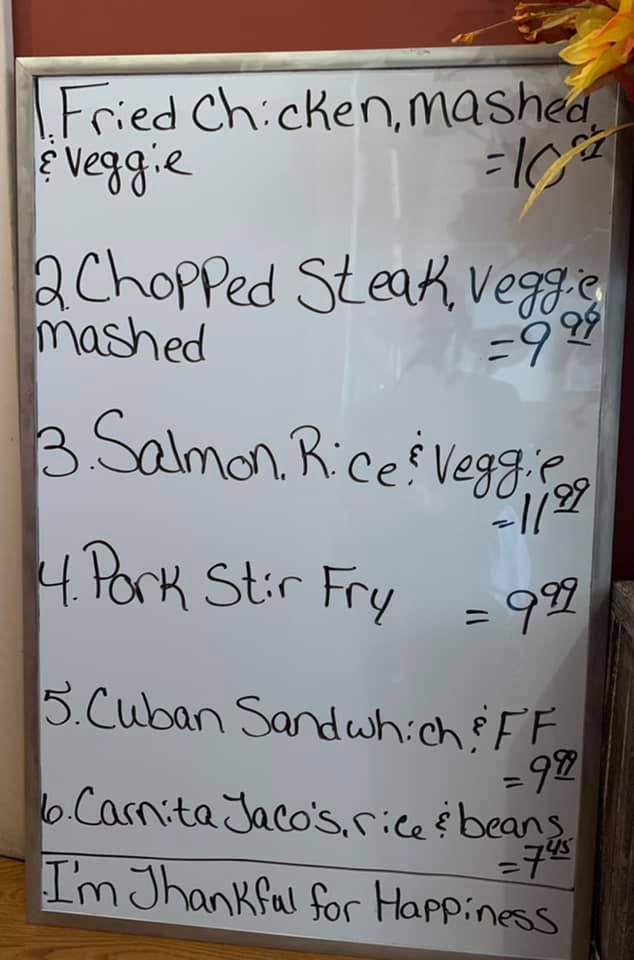 1. Fried Chicken, mashed
& Veggie
2. Chopped Steak, Veggie
mashed =9 99
3. Salmon, Rice & Veggie
=11 99
4. Pork Stir Fry = 9 99
5. Cuban Sandwhich & FF
=9 99
6. Carnita Taco's, rice & beans
=7 45
I'm Thankful for Happiness